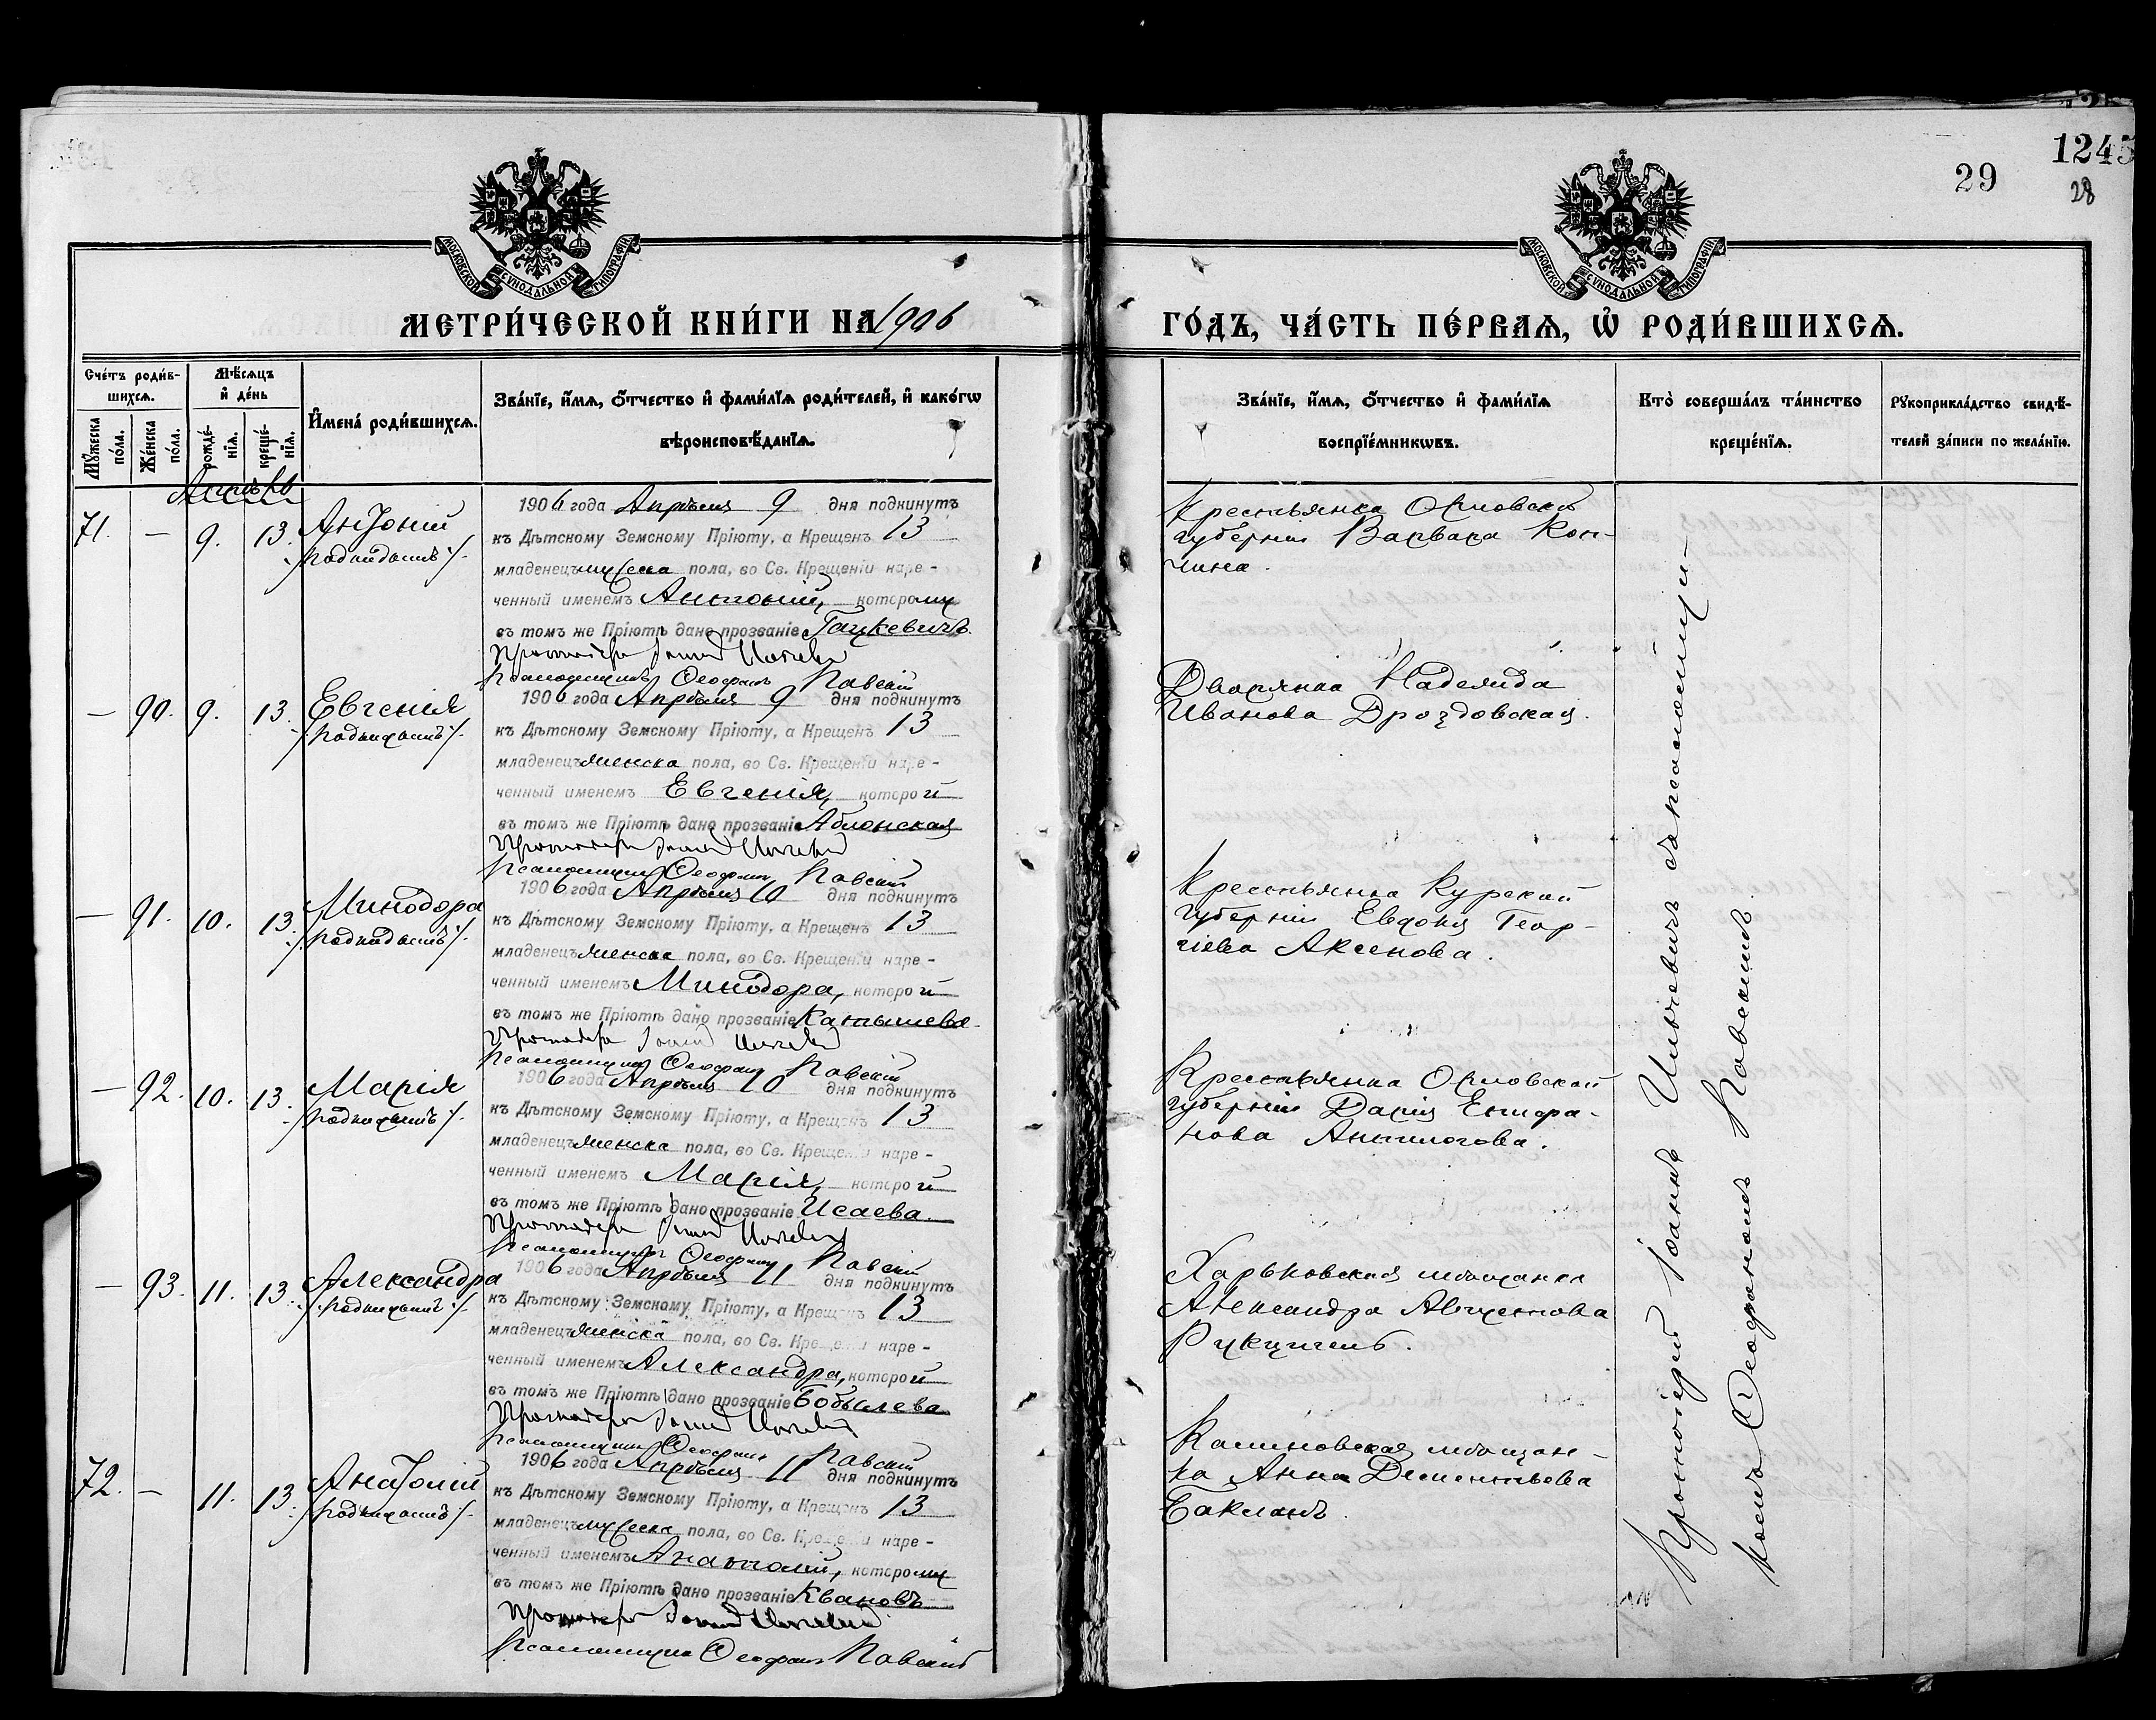 1245
29
28
МОСКОВСКОЙ СУНОДАЛЬНОЙ ТИПОГРАФІИ
МОСКОВСКОЙ СУНОДАЛЬНОЙ ТИПОГРАФІИ
МЕТРИ́ЧЕСКОЙ КНИ́ГИ НА 1906
ГО́ДЪ, ЧА́СТЬ ПЕ́РВАЯ, Ѽ РОДИ́ВШИХСЯ.
Сче́тъ роди́в-
шихся.
Мꙋжеска по́ла.
Же́нска по́ла.
Мѣ́сяцъ
и҆ де́нь
рожде́нїя.
креще́нїя.
И҆мена̀ роди́вшихся.
Зва́нїе, и҆́мя, ѻ҆́тчество и҆ фами́лїя роди́телей, и҆ како́гѡ
вѣроисповѣ́данїя.
Зва́нїе, и҆́мя, ѻ҆́тчество и҆ фами́лїя
воспрїе́мникѡвъ.
Кто̀ соверша́лъ та́инство
креще́нїя.
Рꙋкоприкла́дство свидѣ́-
телей за́писи по жела́нїю.
71. — 9. 13. Антоній
/:подкидышъ:/.
1906 года Апрѣля 9 дня подкинутъ
къ Дѣтскому Земскому Пріюту, а Крещенъ 13
младенецъ мужеска пола, во Св. Крещеніи наре-
ченный именемъ Антоній, которому
въ томъ же Пріютѣ дано прозваніе Гацкевичъ.
Псаломщикъ Ѳеофанъ Павскій
Крестьянка Орловской
губерніи Варвара Кон-
чина.
— 90. 9. 13. Евгенія
/:подкидышъ:/.
1906 года Апрѣля 9 дня подкинутъ
къ Дѣтскому Земскому Пріюту, а Крещенъ 13
младенецъ женска пола, во Св. Крещеніи наре-
ченный именемъ Евгенія, которой
въ томъ же Пріютѣ дано прозваніе Аблонская
Псаломщикъ Ѳеофанъ Павскій
Дворянка Надежда
Иванова Дроздовская.
— 91. 10. 13. Минодора
/:подкидышъ:/.
1906 года Апрѣля 10 дня подкинутъ
къ Дѣтскому Земскому Пріюту, а Крещенъ 13
младенецъ женска пола, во Св. Крещеніи наре-
ченный именемъ Минодора, которой
въ томъ же Пріютѣ дано прозваніе Катышева.
Псаломщикъ Ѳеофанъ Павскій
Крестьянка Курской
губерніи Евдокія Геор-
гіева Аксенова.
— 92. 10. 13. Марія
/:подкидышъ:/.
1906 года Апрѣля 10 дня подкинутъ
къ Дѣтскому Земскому Пріюту, а Крещенъ 13
младенецъ женска пола, во Св. Крещеніи наре-
ченный именемъ Марія, которой
въ томъ же Пріютѣ дано прозваніе Исаева.
Псаломщикъ Ѳеофанъ Павскій
Крестьянка Орловской
губерніи Дарія Епифа-
нова Анпилогова.
— 93. 11. 13. Александра
/:подкидышъ:/.
1906 года Апрѣля 11 дня подкинутъ
къ Дѣтскому Земскому Пріюту, а Крещенъ 13
младенецъ женска пола, во Св. Крещеніи наре-
ченный именемъ Александра, которой
въ томъ же Пріютѣ дано прозваніе Бобылева
Псаломщикъ Ѳеофанъ Павскій
Харьковская мѣщанка
Александра
72. — 11. 13. Анатолій
/:подкидышъ:/.
1906 года Апрѣля 11 дня подкинутъ
къ Дѣтскому Земскому Пріюту, а Крещенъ 13
младенецъ мужеска пола, во Св. Крещеніи наре-
ченный именемъ Анатолій, которому
въ томъ же Пріютѣ дано прозваніе Квановъ
Псаломщикъ Ѳеофанъ Павскій
мѣщан-
ка Анна Дементьева
Бакланъ.
Протоіерей Іоаннъ Ильчевичъ съ псаломщи-
комъ Ѳеофаномъ Павскимъ.